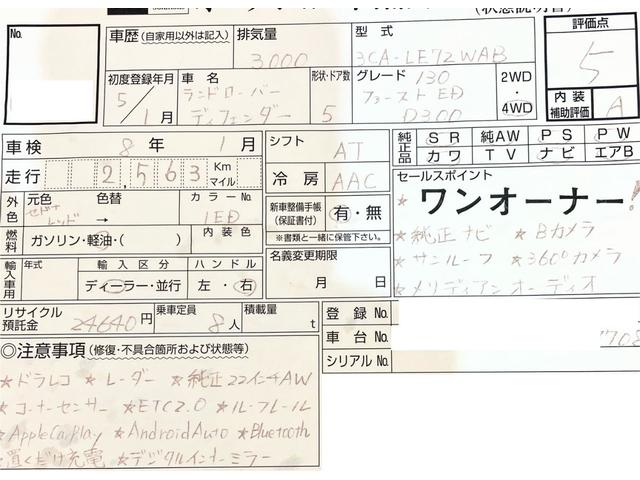 (状態説明書)
No.
車歴(自家用以外は記入)
排気量
3000
型式
3CA-LE72WAB
評価点
5
初度登録年月
5/1月
車名
ランドローバー
ディフェンダー
形状・ドア数
5
グレード 130
ファーストED
D300
2WD
・
4WD
内装
補助評価
A
車検 8年 1月
シフト AT
純正品
SR 純AW PS PW
カワ TV ナビ エアB
走行 2,563 Km
マイル
冷房 AAC
セールスポイント
ワンオーナー!
★純正ナビ ★Bカメラ
★サンルーフ ★360°カメラ
★メリディアンオーディオ
外色
元色 色替 カラーNo.
セドナ
レッド → 1ED
新車整備手帳
(保証書付)
有・無
※書類と一緒に保管下さい。
燃料
ガソリン・軽油・( )
内装色
名義変更期限
月 日
輸入車用
年式 輸入区分 ハンドル
ディーラー・並行 左・右
リサイクル
預託金 24640円
乗車定員 8人
積載量 t
登録No.
車台No.
708
シリアルNo.
◎注意事項(修復・不具合箇所および状態等)
★ドラレコ ★レーダー ★純正22インチAW
★コーナーセンサー ★ETC2.0 ★ルーフレール
★AppleCarPlay ★AndroidAuto ★Bluetooth
★置くだけ充電 ★デジタルインナーミラー